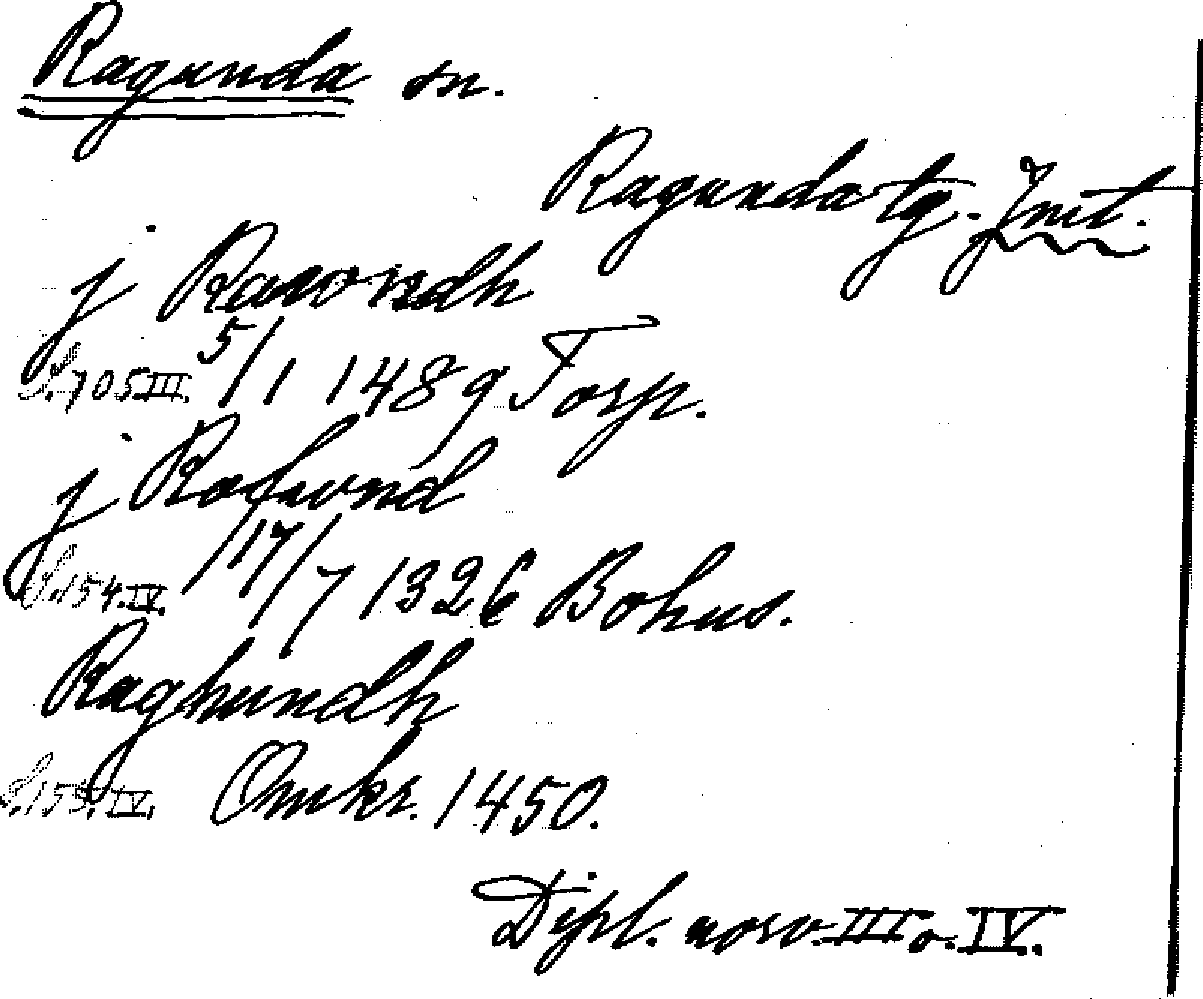 Ragunda sn.
Ragunda tg. Jmt.
j Rawondh
S. 705 III. 5/1 1489 Torp.
j Rafwnd
S. 154. IV. 17/7 1326 Bohus.
Raghundh
S. 153. IV. Omkr. 1450.
Dipl. norv. III o. IV.